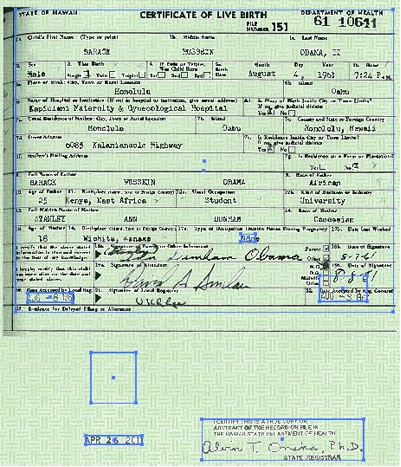 STATE OF HAWAII CERTIFICATE OF LIVE BIRTH DEPARTMENT OF HEALTH
FILE NUMBER 151 61 10641
1a. Child's First Name (Type or print) 1b. Middle Name 1c. Last Name
BARACK HUSSEIN OBAMA, II
2. Sex 3. This Birth 4. If Twin or Triplet, Was Child Born 5a. Birth Date Month Day Year 5b. Hour
Male Single Twin Triplet August 4, 1961 7:24 P.M.
6a. Place of Birth: City, Town or Rural Location 6b. Island
Honolulu Oahu
6c. Name of Hospital or Institution (If not in hospital or institution, give street address) 6d. Is Place of Birth Inside City or Town Limits?
Kapiolani Maternity & Gynecological Hospital If no, give judicial district
Yes No
7a. Usual Residence of Mother: City, Town or Rural Location 7b. Island 7c. County and State or Foreign Country
Honolulu Oahu Honolulu, Hawaii
7d. Street Address 7e. Is Residence Inside City or Town Limits?
6085 Kalanianaole Highway If no, give judicial district
Yes No
7f. Mother's Mailing Address 7g. Is Residence on a Farm or Plantation?
Yes No
8. Full Name of Father 9. Race of Father
BARACK HUSSEIN OBAMA African
10. Age of Father 11. Birthplace 12a. Usual Occupation 12b. Kind of Business or Industry
25 Kenya, East Africa Student University
13. Full Maiden Name of Mother 14. Race of Mother
STANLEY ANN DUNHAM Caucasian
15. Age of Mother 16. Birthplace 17a. Type of Occupation Outside Home During Pregnancy 17b. Date Last Worked
18 Wichita, Kansas None
I certify that the above stated information is true and correct to the best of my knowledge. 18a. Signature of Parent or Other Informant Parent Other 18b. Date of Signature
Dunham Obama 8-7-61
I hereby certify that this child was born alive on the date and hour stated above. 19a. Signature of Attendant M.D. 19b. Date of Signature
David A Sinclair 8-8-61
20. Date Accepted by Local Reg. 21. Signature of Local Registrar 22. Date Accepted by Reg. General
AUG -8 AUG -8
23. Evidence for Delayed Filing or Alteration
APR 25 2011
I CERTIFY THIS IS A TRUE COPY OR
ABSTRACT OF THE RECORD ON FILE IN
THE HAWAII STATE DEPARTMENT OF HEALTH
Alvin T. Onaka, Ph.D.
STATE REGISTRAR